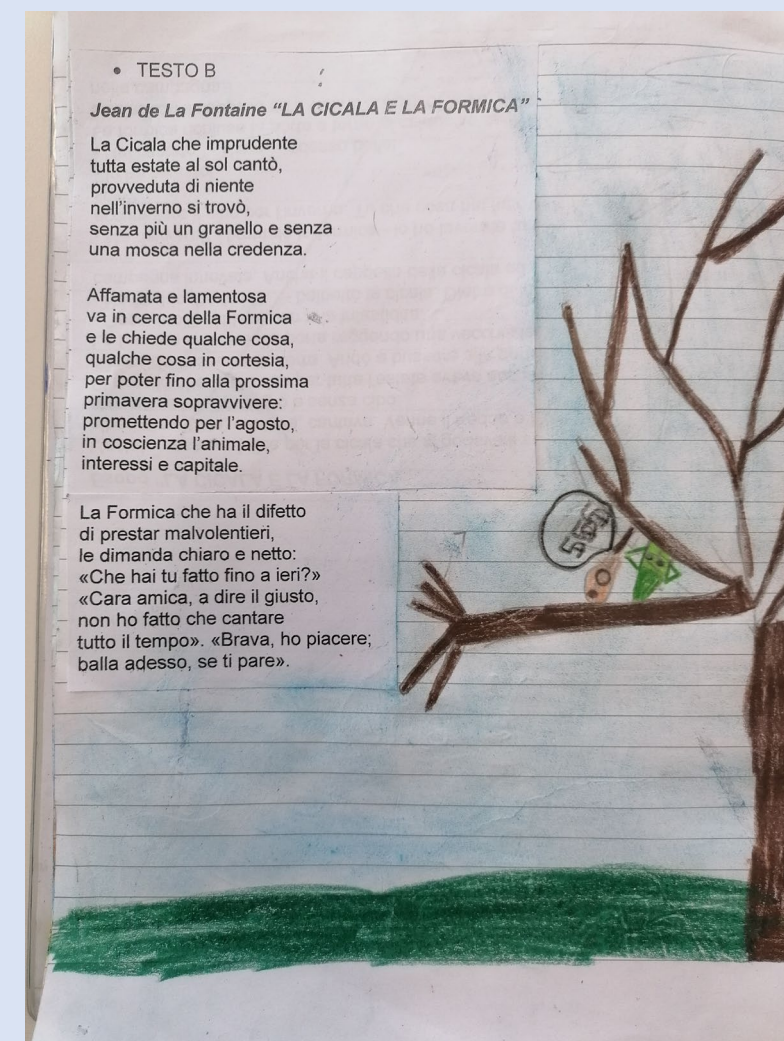 • TESTO B
Jean de La Fontaine “LA CICALA E LA FORMICA”
La Cicala che imprudente
tutta estate al sol cantò,
provveduta di niente
nell’inverno si trovò,
senza più un granello e senza
una mosca nella credenza.
Affamata e lamentosa
va in cerca della Formica
e le chiede qualche cosa,
qualche cosa in cortesia,
per poter fino alla prossima
primavera sopravvivere:
promettendo per l’agosto,
in coscienza l’animale,
interessi e capitale.
La Formica che ha il difetto
di prestar malvolentieri,
le dimanda chiaro e netto:
«Che hai tu fatto fino a ieri?»
«Cara amica, a dire il giusto,
non ho fatto che cantare
tutto il tempo». «Brava, ho piacere;
balla adesso, se ti pare».